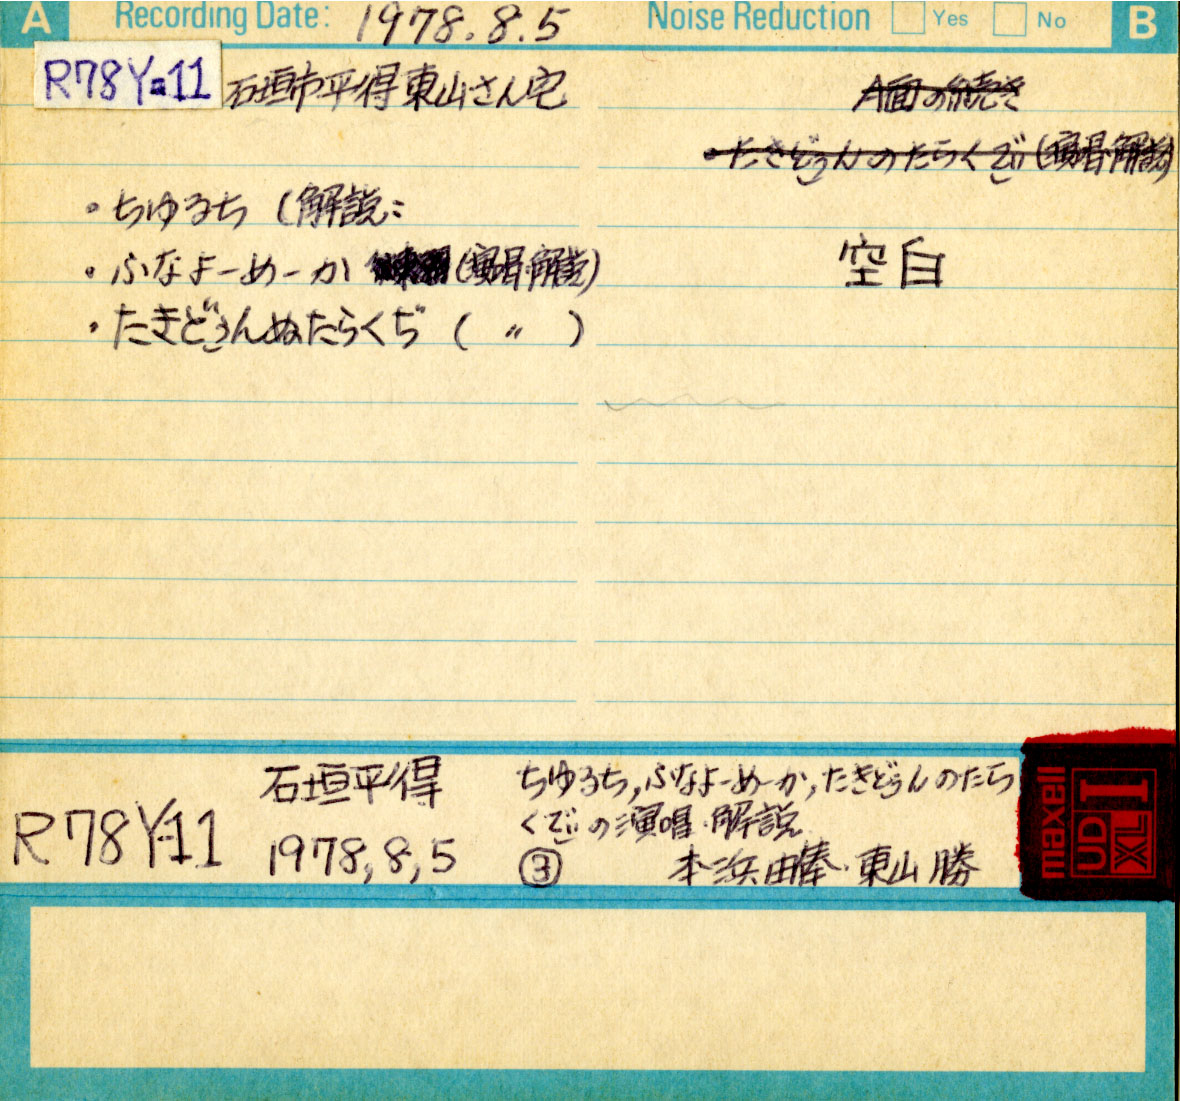 A Recording Date: 1978.8.5 Noise Reduction Yes No B
R78Y-11 石垣市平得東山さん宅
・ちゆるち (解説:
・ふなよーめーか (演唱・解説)
・たきどぅんぬたらくぢ ( 〃 )
A面の続き
・たきどぅんのたらくじ (演唱・解説)
空白
R78Y-11
石垣平得
1978,8,5
ちゆるち,ふなよーめーか,たきどぅんのたら
くじの演唱・解説
③ 本浜由棒・東山勝
maxell
UD
XL I